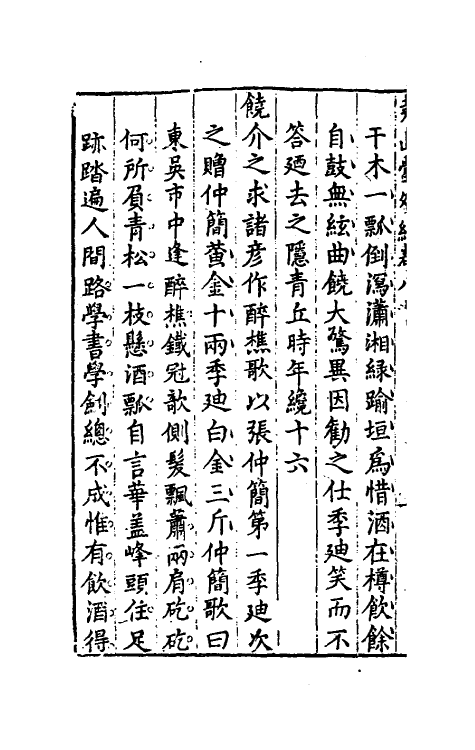 干木一瓢倒瀉瀟湘緑踰垣爲惜酒在樽飲餘
自鼓無絃曲饒大驚異因勸之仕季廸笑而不
答廼去之隱青丘時年纔十六
饒介之求諸彦作醉樵歌以張仲簡第一季廸次
之贈仲簡黄金十兩季廸白金三斤仲簡歌曰
東吳市中逢醉樵鐵冠歌側髮飄蕭兩肩矻矻
何所負青松一枝懸酒瓢自言華盖峰頭住足
跡踏遍人間路學書學劍總不成惟有飲酒得